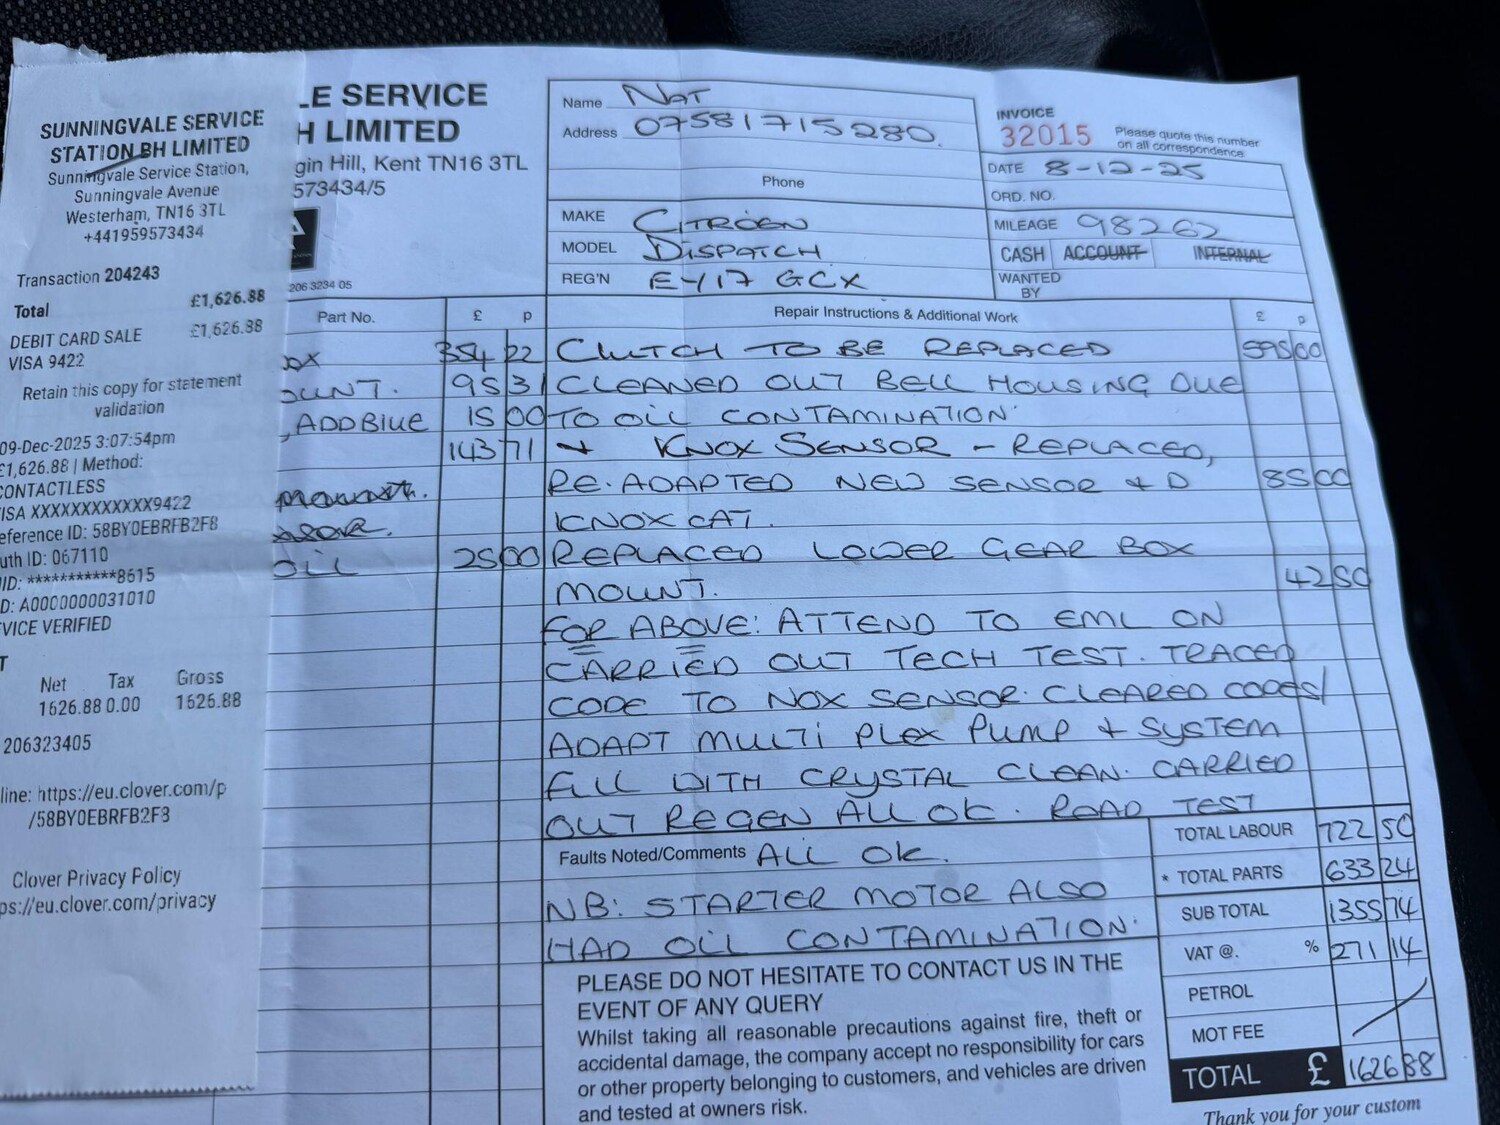 SUNNINGVALE SERVICE
STATION BH LIMITED
Sunningvale Service Station,
Sunningvale Avenue
Westerham, TN16 3TL
+441959573434
Transaction 204243
Total £1,626.88
DEBIT CARD SALE £1,626.88
VISA 9422
Retain this copy for statement
validation
09-Dec-2025 3:07:54pm
£1,626.88 | Method:
CONTACTLESS
ISA XXXXXXXXXXXX9422
eference ID: 58BY0EBRFB2F8
uth ID: 067110
ID: ***********8615
D: A0000000031010
VICE VERIFIED
T
Net Tax Gross
1626.88 0.00 1626.88
206323405
line: https://eu.clover.com/p
/58BY0EBRFB2F8
Clover Privacy Policy
ps://eu.clover.com/privacy
LE SERVICE
H LIMITED
gin Hill, Kent TN16 3TL
573434/5
206 3234 05
Name NAT
Address 07581715280.
Phone
MAKE CITRÖEN
MODEL DISPATCH
REG'N EY17 GCX
INVOICE
32015 Please quote this number
on all correspondence
DATE 8-12-25
ORD. NO.
MILEAGE 98262
CASH ACCOUNT INTERNAL
WANTED
BY
Part No. £ p
OX 354 22
OUNT. 95 31
, ADDBLUE 15 00
143 71
OIL 25 00
Repair Instructions & Additional Work £ p
CLUTCH TO BE REPLACED 595 00
CLEANED OUT BELL HOUSING DUE
TO OIL CONTAMINATION
+ KNOX SENSOR - REPLACED,
RE-ADAPTED NEW SENSOR + D 85 00
KNOX CAT.
REPLACED LOWER GEAR BOX
MOUNT. 42 50
FOR ABOVE: ATTEND TO EML ON
CARRIED OUT TECH TEST. TRACED
CODE TO NOX SENSOR. CLEARED CODES/
ADAPT MULTI PLEX PUMP + SYSTEM
FILL WITH CRYSTAL CLEAN. CARRIED
OUT REGEN ALL OK. ROAD TEST
Faults Noted/Comments ALL OK.
NB: STARTER MOTOR ALSO
HAD OIL CONTAMINATION.
TOTAL LABOUR 722 50
* TOTAL PARTS 633 24
SUB TOTAL 1355 74
VAT @. % 271 14
PETROL
MOT FEE
TOTAL £ 1626 88
PLEASE DO NOT HESITATE TO CONTACT US IN THE
EVENT OF ANY QUERY
Whilst taking all reasonable precautions against fire, theft or
accidental damage, the company accept no responsibility for cars
or other property belonging to customers, and vehicles are driven
and tested at owners risk.
Thank you for your custom